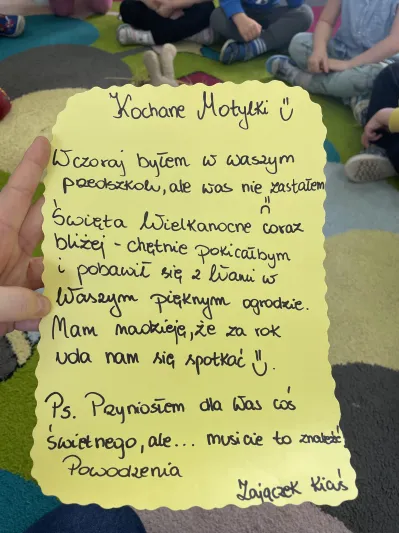 Kochane Motylki :)
Wczoraj byłem w waszym
przedszkolu, ale was nie zastałem
:(
Święta Wielkanocne coraz
bliżej - chętnie pokicałbym
i pobawił się z Wami w
Waszym pięknym ogrodzie.
Mam nadzieję, że za rok
uda nam się spotkać :).
Ps. Przyniosłem dla Was coś
świetnego, ale... musicie to znaleźć
Powodzenia
Zajączek Kicuś